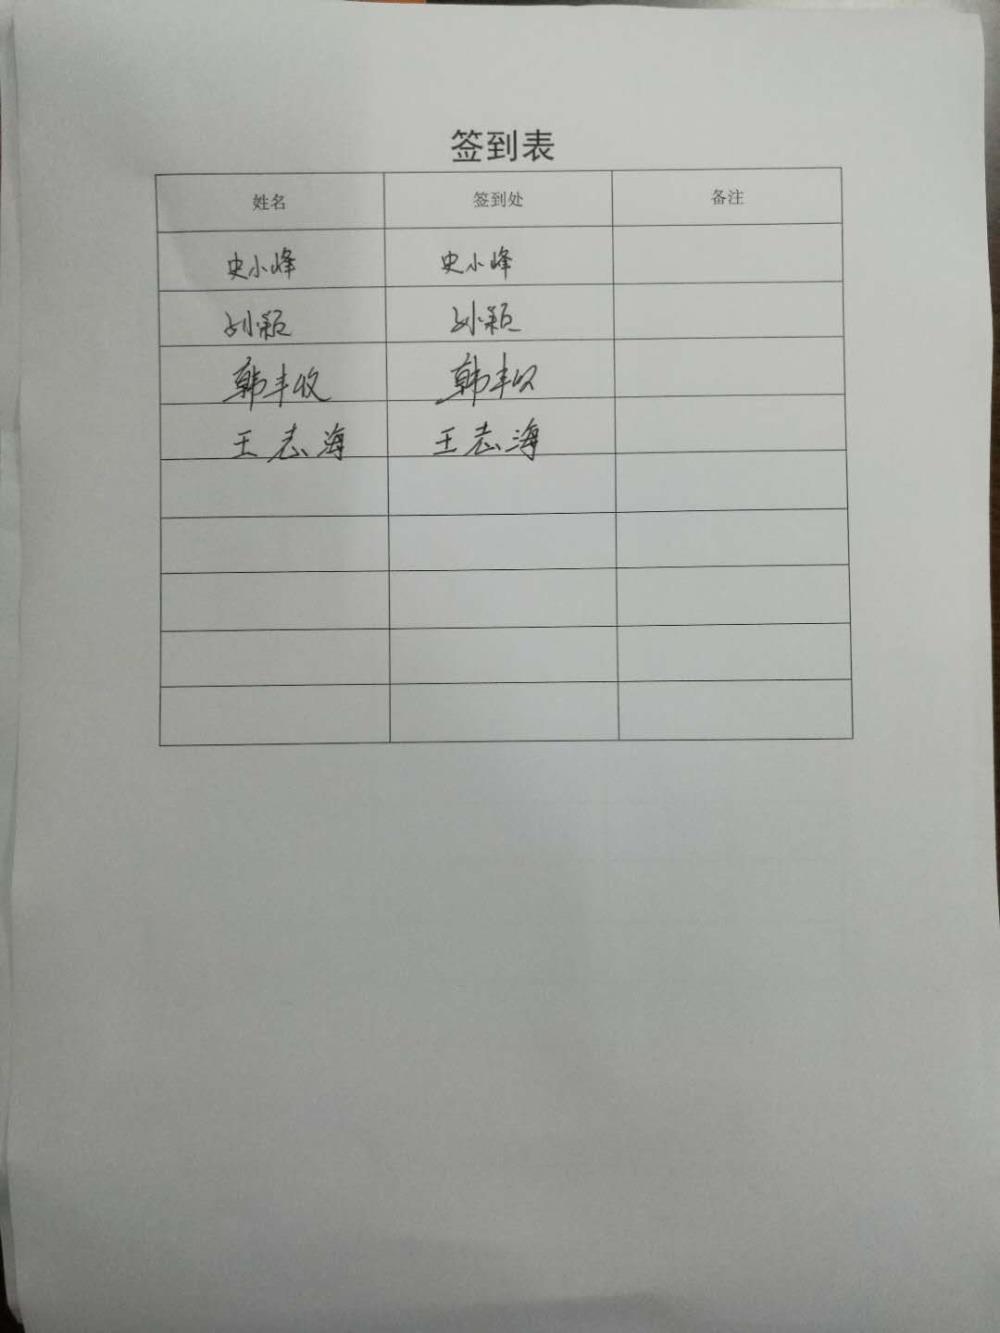 签到表
姓名 签到处 备注
史小峰 史小峰
孙颖 孙颖
韩丰收 韩丰收
王志海 王志海